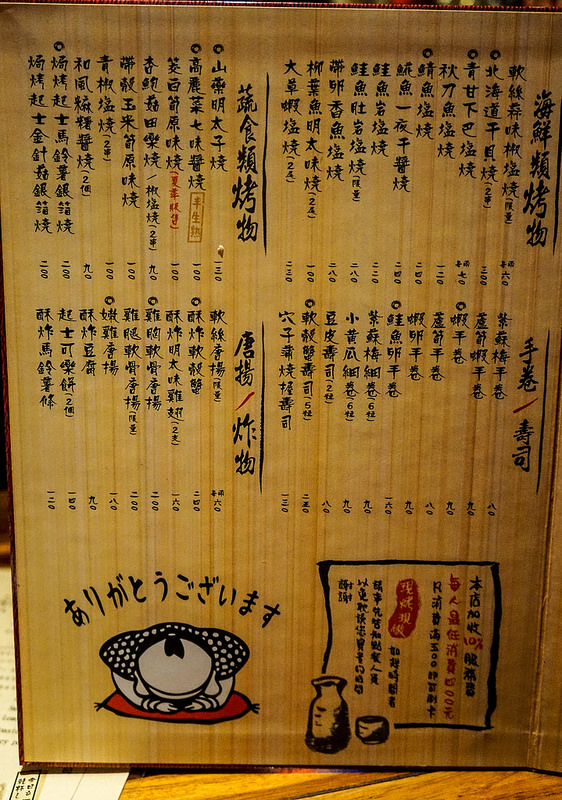 海鮮類烤物
軟絲蒜味椒塩燒(限量) 兩每六〇
北海道干貝燒(2串) 三〇〇
青甘下巴塩燒 兩每七〇
秋刀魚塩燒 一二〇
鯖魚塩燒 一四〇
魠魚一夜干醬燒 二四〇
鮭魚岩塩燒 二二〇
鮭魚肚岩塩燒(限量) 二八〇
帶卵香魚塩燒 一八〇
柳葉魚明太味燒(2尾) 一〇〇
大草蝦塩燒(2尾) 一三〇
蔬食類烤物
山藥明太子燒 一三〇
高麗菜七味醬燒 半生熟 一〇〇
茭白筍原味燒(夏季販售) 一〇〇
杏鮑菇田樂燒/椒塩燒(2串) 九〇
帶殼玉米筍原味燒 一〇〇
青椒塩燒(2串) 一〇〇
和風麻糬醬燒(2個) 九〇
焗烤起士馬鈴薯銀箔燒 二〇〇
焗烤起士金針菇銀箔燒 二〇〇
手卷/壽司
紫蘇梅手卷 八〇
蘆筍蝦手卷 九〇
蝦手卷 九〇
蘆筍手卷 八〇
蝦卵手卷 九〇
鮭魚卵手卷 一六〇
紫蘇梅細卷(6粒) 九〇
小黃瓜細卷(6粒) 九〇
豆皮壽司(2粒) 八〇
軟殼蟹壽司(5粒) 二五〇
穴子蒲燒握壽司 一三〇
唐揚/炸物
軟絲唐揚(限量) 兩每六〇
酥炸軟殼蟹 二四〇
酥炸明太味雞翅(2支) 一六〇
雞胸軟骨唐揚 二〇〇
雞腿軟骨唐揚(限量) 二〇〇
嫩雞唐揚 一八〇
酥炸豆腐 九〇
起士可樂餅(2個) 一四〇
酥炸馬鈴薯條 一二〇
本店加收10%服務費
每人最低消費四〇〇元
凡消費滿五〇〇即可刷卡
現烤現做
如趕時間者
請事先告知點餐人員
以免耽誤您寶貴的時間
謝謝
ありがとうございます